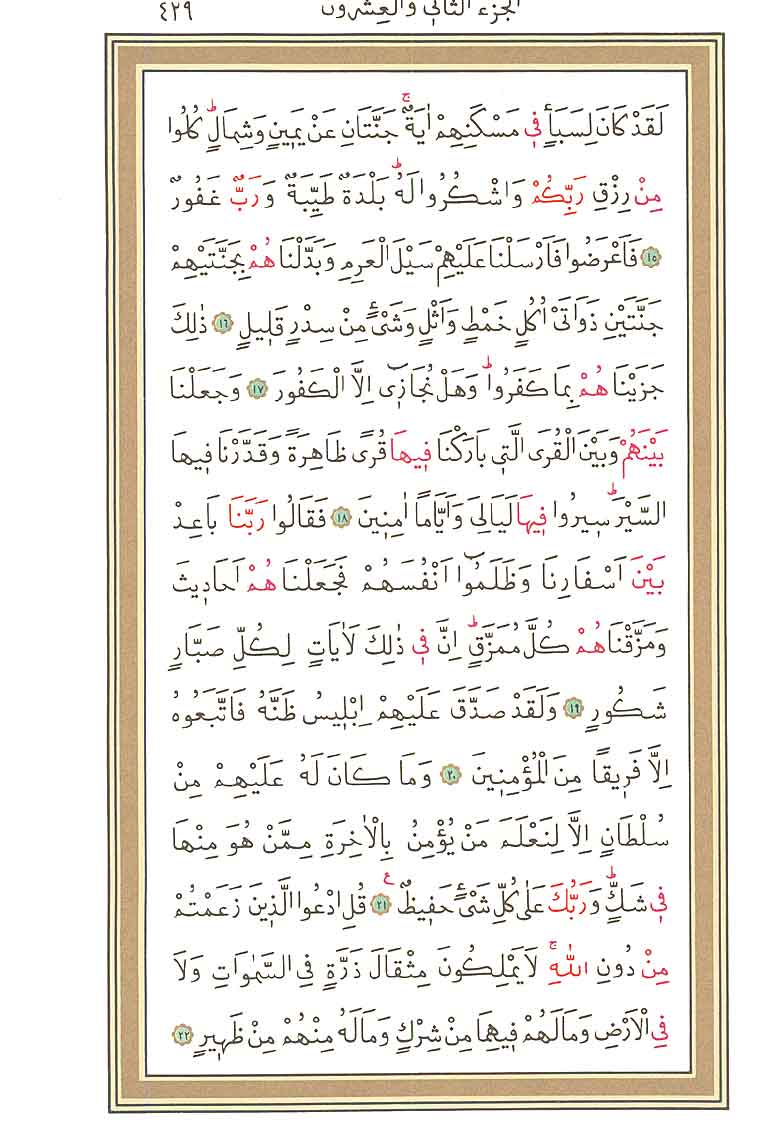 الجزء الثاني والعشرون ٤٢٩
لَقَدْ كَانَ لِسَبَأٍ فِي مَسْكَنِهِمْ اٰيَةٌۚ جَنَّتَانِ عَنْ يَمِينٍ وَشِمَالٍۜ كُلُوا
مِنْ رِزْقِ رَبِّكُمْ وَاشْكُرُوا لَهُۜ بَلْدَةٌ طَيِّبَةٌ وَرَبٌّ غَفُورٌ
﴿١٥﴾ فَاَعْرَضُوا فَاَرْسَلْنَا عَلَيْهِمْ سَيْلَ الْعَرِمِ وَبَدَّلْنَاهُمْ بِجَنَّتَيْهِمْ
جَنَّتَيْنِ ذَوَاتَيْ اُكُلٍ خَمْطٍ وَاَثْلٍ وَشَيْءٍ مِنْ سِدْرٍ قَلِيلٍ ﴿١٦﴾ ذٰلِكَ
جَزَيْنَاهُمْ بِمَا كَفَرُواۜ وَهَلْ نُجَازِٓي اِلَّا الْكَفُورَ ﴿١٧﴾ وَجَعَلْنَا
بَيْنَهُمْ وَبَيْنَ الْقُرَى الَّتِي بَارَكْنَا فِيهَا قُرًى ظَاهِرَةً وَقَدَّرْنَا فِيهَا
السَّيْرَۜ سِيرُوا فِيهَا لَيَالِيَ وَاَيَّامًا اٰمِنِينَ ﴿١٨﴾ فَقَالُوا رَبَّنَا بَاعِدْ
بَيْنَ اَسْفَارِنَا وَظَلَمُٓوا اَنْفُسَهُمْ فَجَعَلْنَاهُمْ اَحَادِيثَ
وَمَزَّقْنَاهُمْ كُلَّ مُمَزَّقٍۜ اِنَّ فِي ذٰلِكَ لَاٰيَاتٍ لِكُلِّ صَبَّارٍ
شَكُورٍ ﴿١٩﴾ وَلَقَدْ صَدَّقَ عَلَيْهِمْ اِبْلِيسُ ظَنَّهُ فَاتَّبَعُوهُ
اِلَّا فَرِيقًا مِنَ الْمُؤْمِنِينَ ﴿٢٠﴾ وَمَا كَانَ لَهُ عَلَيْهِمْ مِنْ
سُلْطَانٍ اِلَّا لِنَعْلَمَ مَنْ يُؤْمِنُ بِالْاٰخِرَةِ مِمَّنْ هُوَ مِنْهَا
فِي شَكٍّۜ وَرَبُّكَ عَلٰى كُلِّ شَيْءٍ حَفِيظٌ ﴿٢١﴾ ع قُلِ ادْعُوا الَّذِينَ زَعَمْتُمْ
مِنْ دُونِ اللّٰهِۚ لَا يَمْلِكُونَ مِثْقَالَ ذَرَّةٍ فِي السَّمٰوَاتِ وَلَا
فِي الْاَرْضِ وَمَا لَهُمْ فِيهِمَا مِنْ شِرْكٍ وَمَا لَهُ مِنْهُمْ مِنْ ظَهِيرٍ ﴿٢٢﴾